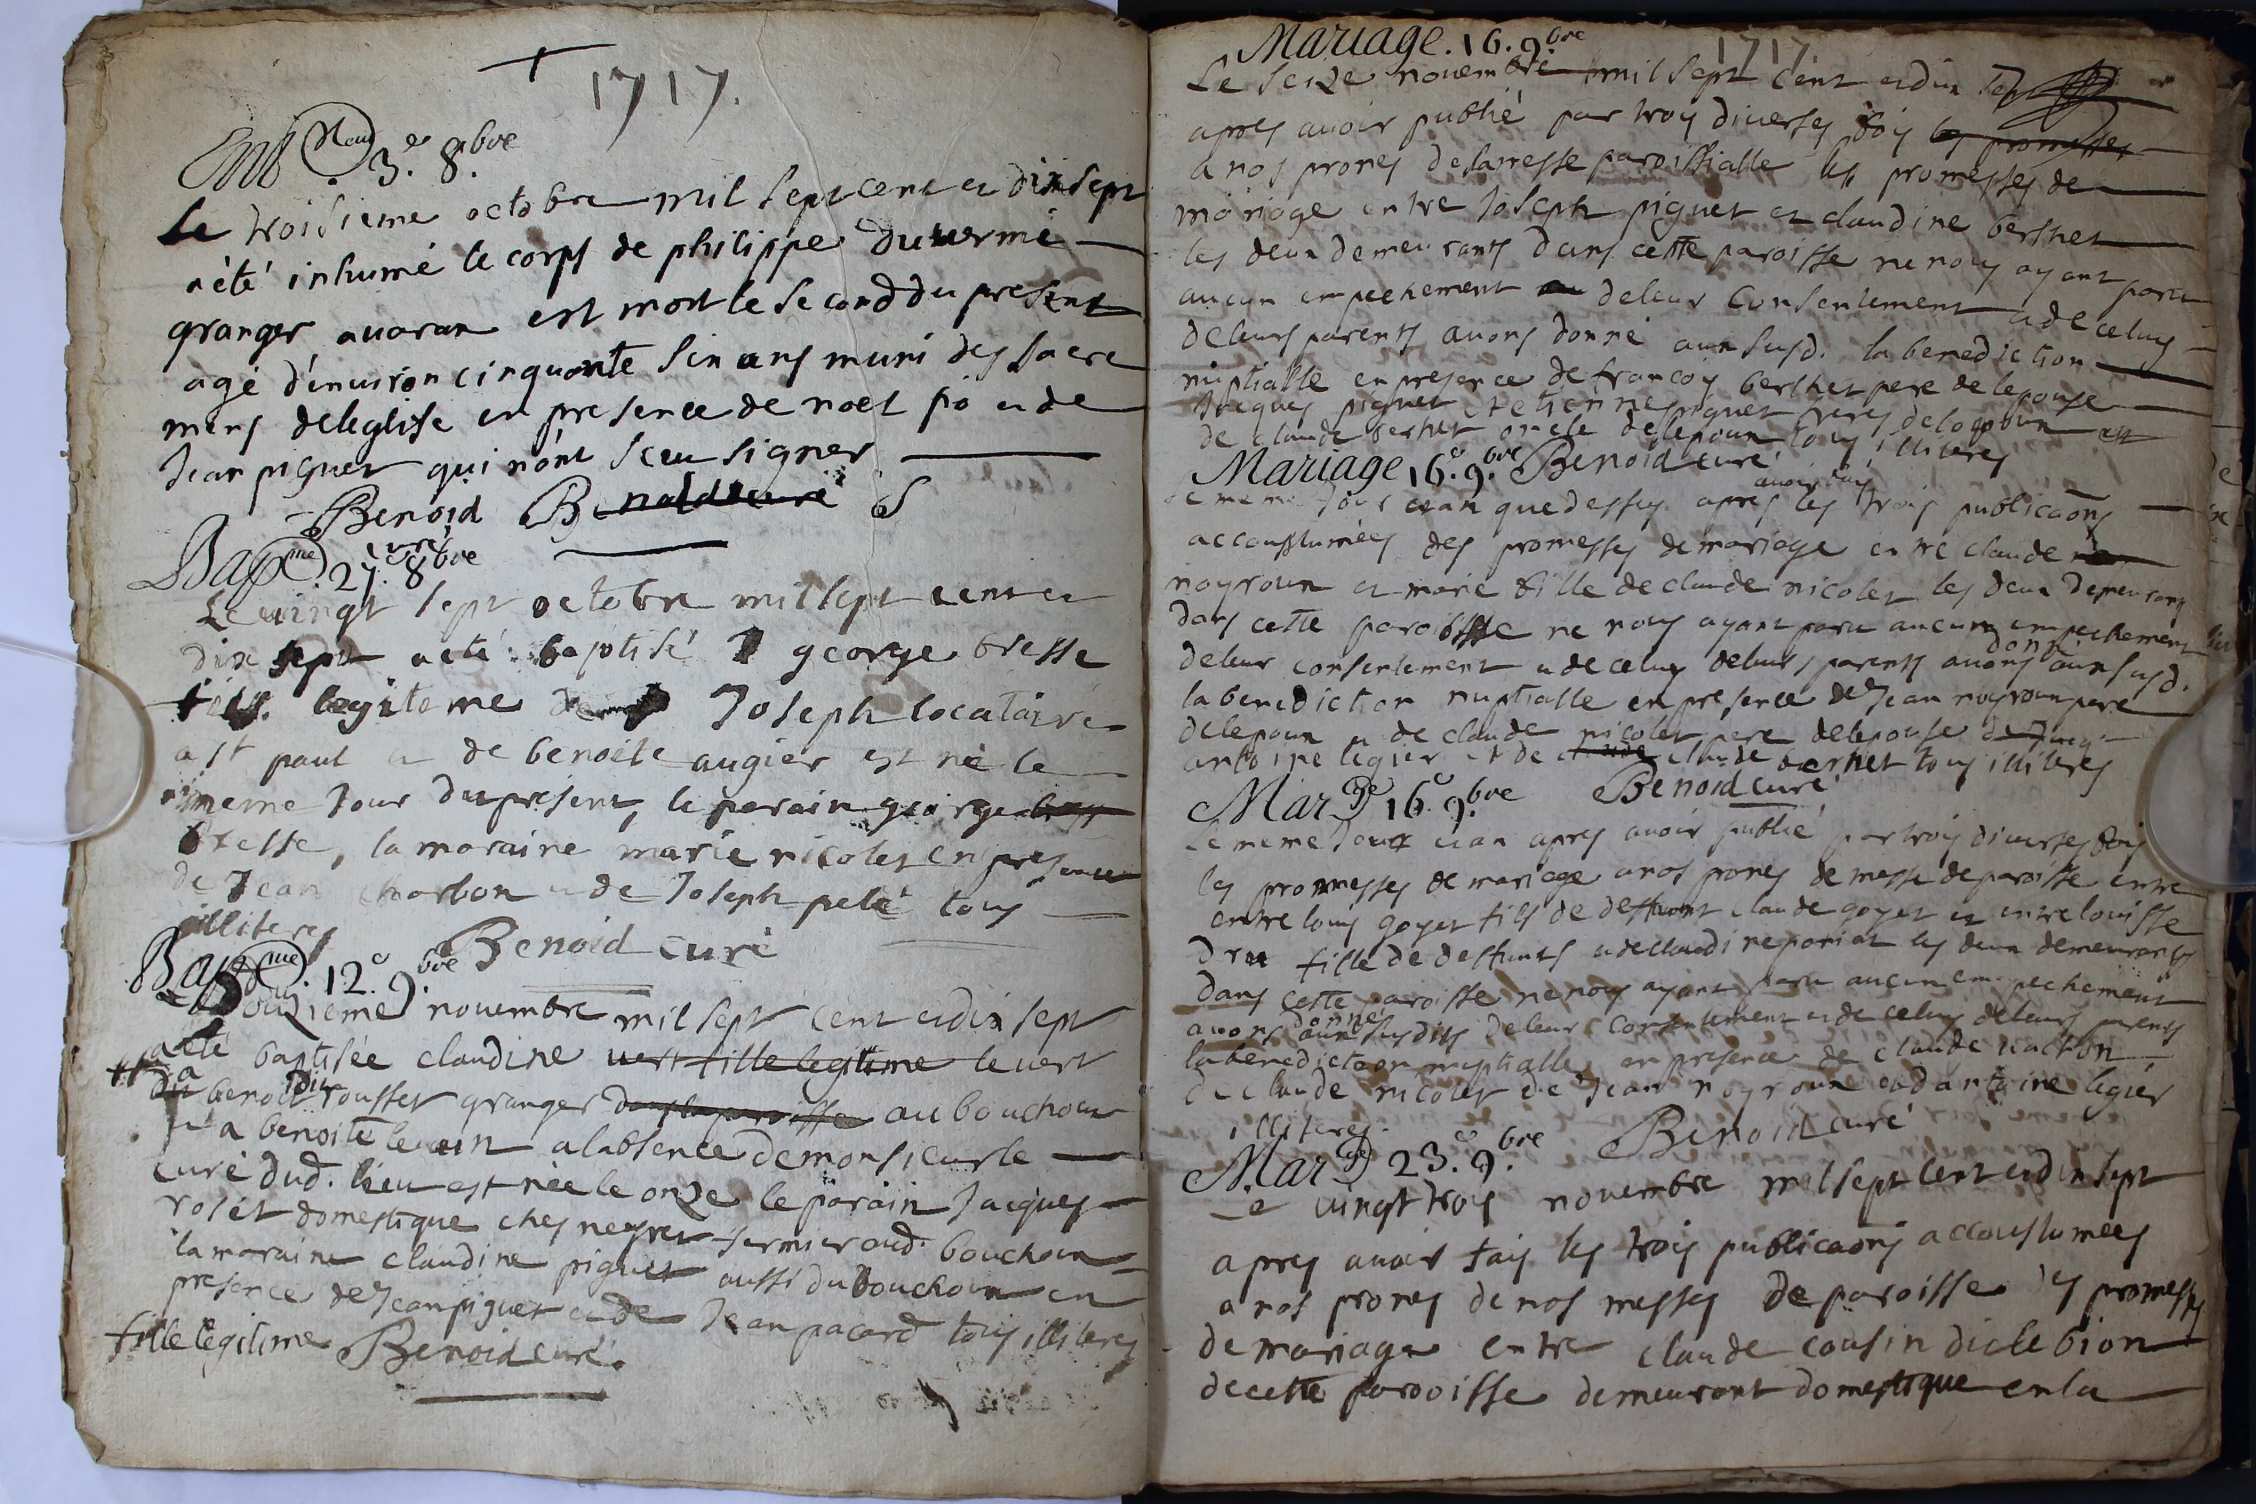 1717.
3e. 8.bre
Le troisieme octobre mil sept cent et dix sept
a été inhumé le corps de philippe duvermé
granger avaran est mort le second du present
agé d'environ cinquante six ans muni des sacre
mens de leglise en presence de noel fió et de
Jean piguet qui n'ont sceu signer
Benoid curé
Bapme. 27.e 8bre
Le vingt sept octobre mil sept cent et
dix sept a eté baptisé george bresse
fils legiteme de Joseph locataire
a st paul et de benoite augier est né le
meme Jour du present, le parain george
bresse, la maraine marie nicolet en presence
de Jean charbon et de Joseph pelé tous
illiteres
Benoid curé
Bapme. 12.e 9.bre
Le Douzieme novembre mil sept cent et dix sept
a eté baptisée claudine vert fille legitime levert
a benoit dit rousset granger dans la paroisse au bouchoux
et a benoite levain a labsence de monsieur le
curé dud. lieu est née le onze le parain Jacques
roset domestique ches neyret fermier aud. bouchoux
la maraine claudine piguet aussi du bouchoux en
presence de Jean piguet et de Jean pacard tous illiteres
fille legitime Benoid curé.
Mariage. 16. 9.bre
1717
Le seize novembre mil sept cent et dix sept
apres avoir publié par trois diverses fois les promesses
a nos prones de la messe paroissialle les promesses de
mariage entre Joseph piguet et claudine berthet
les deux demeurants dans cette paroisse ne nous ayant paru
aucun empechement de leur consentement et de celuy
de leurs parents avons donné aux susd. la benediction
nuptialle en presence de francois berthet pere de lepouse
Jacques piguet et etienne piguet freres de lepoux et
de claude berthet oncle de lepoux tous illiteres
Mariage 16.e 9.bre Benoid curé
avoir fais
Le meme Jour et an que dessus apres les trois publicaons
accoustumées des promesses de mariage entre claude
noyroux et marie fille de claude nicolet les deux demeurans
dans cette paroisse ne nous ayant paru aucun empechement
donné
de leur consentement et de celuy de leurs parents avons aux susd.
la benediction nuptialle en presence de Jean noyroux pere
de lepoux et de claude nicolet pere de lepouse
antoine legier et de claude berthet tous illiteres
Marge 16.e 9.bre Benoid curé
Le meme Jour et an apres avoir publié par trois diverses fois
les promesses de mariage a nos prones de messe de paroisse entre
entre louis goyet fils de deffunt claude goyet et entre louisse
dru fille de deffunts et de claudine pariat les deux demeurants
dans cette paroisse ne nous ayant paru aucun empechement
donné
avons aux susdits de leur consentement et de celuy de leurs parents
la benediction nuptialle en presence de claude vachon
de claude nicolet de Jean noyroux et dantoine legier
illiteres.
Benoid curé
Marge 23.e 9.bre
Le vingt trois novembre mil sept cent et dix sept
apres avoir fais les trois publicaons accoustumées
a nos prones de nos messes de paroisse des promesses
de mariage entre claude cousin dicle bion
de cette paroisse demeurant domestique en la